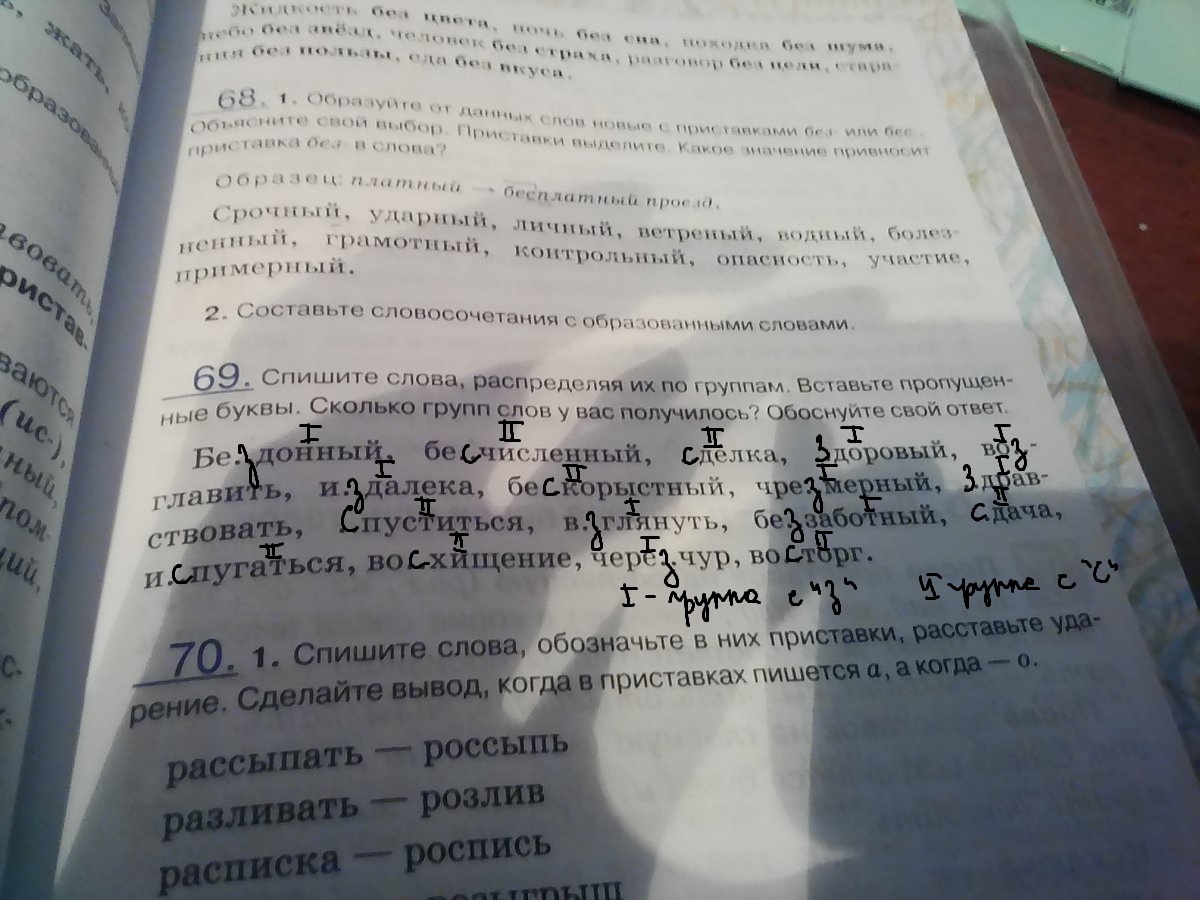 Жидкость без цвета, ночь без сна, походка без шума,
небо без звёзд, человек без страха, разговор без цели, стара-
ния без пользы, еда без вкуса.
68. 1. Образуйте от данных слов новые с приставками без- или бес-.
Объясните свой выбор. Приставки выделите. Какое значение привносит
приставка без- в слова?
Образец: платный → бесплатный проезд.
Срочный, ударный, личный, ветреный, водный, болез-
ненный, грамотный, контрольный, опасность, участие,
примерный.
2. Составьте словосочетания с образованными словами.
69. Спишите слова, распределяя их по группам. Вставьте пропущен-
ные буквы. Сколько групп слов у вас получилось? Обоснуйте свой ответ.
I II II I I
Бе.здонный, бесчисленный, сделка, здоровый, воз-
I II I I
главить, и.здалека, бескорыстный, чрезмерный, з.драв-
II I I II
ствовать, спуститься, в.зглянуть, беззаботный, сдача,
II II I II
и.спугаться, восхищение, черезчур, восторг.
I - группа с "з" II группа с "с"
70. 1. Спишите слова, обозначьте в них приставки, расставьте уда-
рение. Сделайте вывод, когда в приставках пишется а, а когда — о.
рассыпать — россыпь
разливать — розлив
расписка — роспись
розыгрыш
жать,
образован
ствовать,
пристав-
ваются
(ис-),